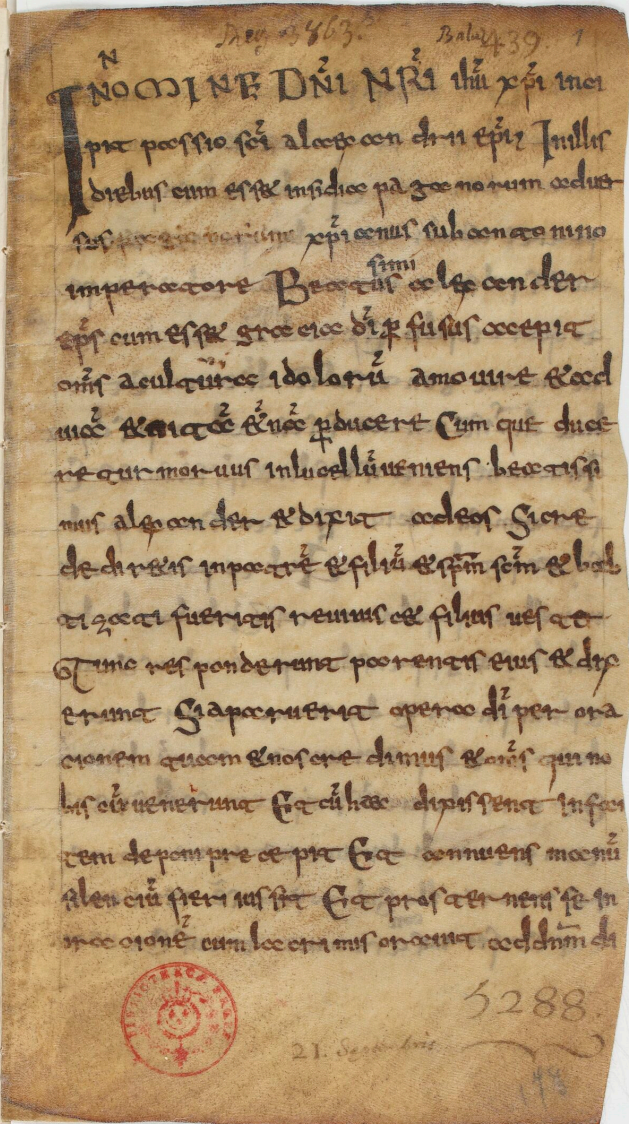 Reg. 3863.
Baluz 439. 1
IN NOMINE DN̄I NR̄I ih̄u xp̄i inci
pit passio sc̄i alexandrii ep̄i Inillis
diebus cum esset insidia paganorum aduer
sus xp̄ianus sub antonino
imperatore Beatissimus alexander
ep̄s cum esset gracia dī perfusus accepit
om̄s acultura idolorū amouire et ad
uiā et ad ducere Cum que duce
retur moruus inlucellū ueniens beatissi
mus alexander et dixit adeos Si cre
dedireis inpatrē et filiū et sp̄m sc̄m et bab
tizati fueritis reuiuis cet filius uester
Tunc responderunt parentis eius et dix
erunt Siaparuerit opera dī per ora
cionem tuam et nos credimus et om̄s qui no
bis cū uenerunt Et cū hec dixissent infan
tem deponi precepit Et annuens manū
silenciū fieri iussit Et prosternens se in
oracionē cum lacrimis orauit ad dn̄m di
5288.
21. Septembris